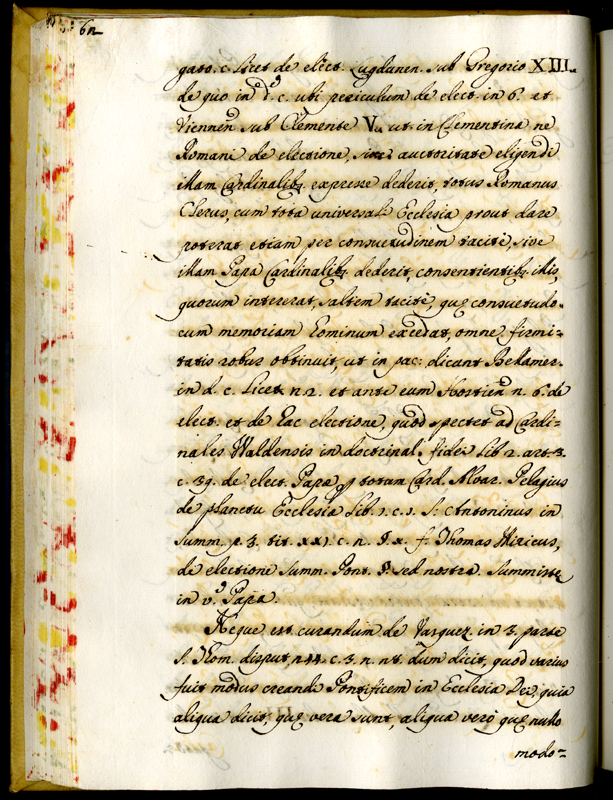 62
gato. c. Licet de elect. Lugdunen. sub Gregorio XIII.
de quo in d. c. ubi periculum de elect. in 6. et
Viennen sub Clemente V. ut in Clementina ne
Romani de electione, sive auctoritate eligendi
illam Cardinalibq. expresse dederit, totus Romanus
Clerus, cum tota universali Ecclesia prout dare
poterat etiam per consuetudinem tacite, sive
illam Papa Cardinalibq. dederit, consentientibq. illis,
quorum intererat, saltem tacite, quę consuetudo.
cum memoriam hominum excedat, omne firmi=
tatis robur obtinuit, ut in pac: dicant Bellamer.
in d. c. Licet n. 2. et ante eum Hostien n. 6. de
elect. et de hac electione, quod spectet ad Cardi=
nales Waldensis in doctrinali fidei Lib 2. art. 3.
c. 39. de elect. Papæ totum Card. Alvar. Pelagius
de planctu Ecclesiæ Lib. 1. c. 1. S: Antoninus in
Summ. p. 3. tit. XXI. c. n. §. x. f. Thomas
de electione Summ. Pont. §. sed nostra. Summistæ
in v.º Papa.
Neque est curandum de Vasquez. in 3. parte
S. Thom. disput. 244. c. 3. n. dum dicit, quod varius
fuit modus creandi Pontificem in Ecclesia Dei, quia
aliqua dicit, quę vera sunt, aliqua vero quę nullo
modo=